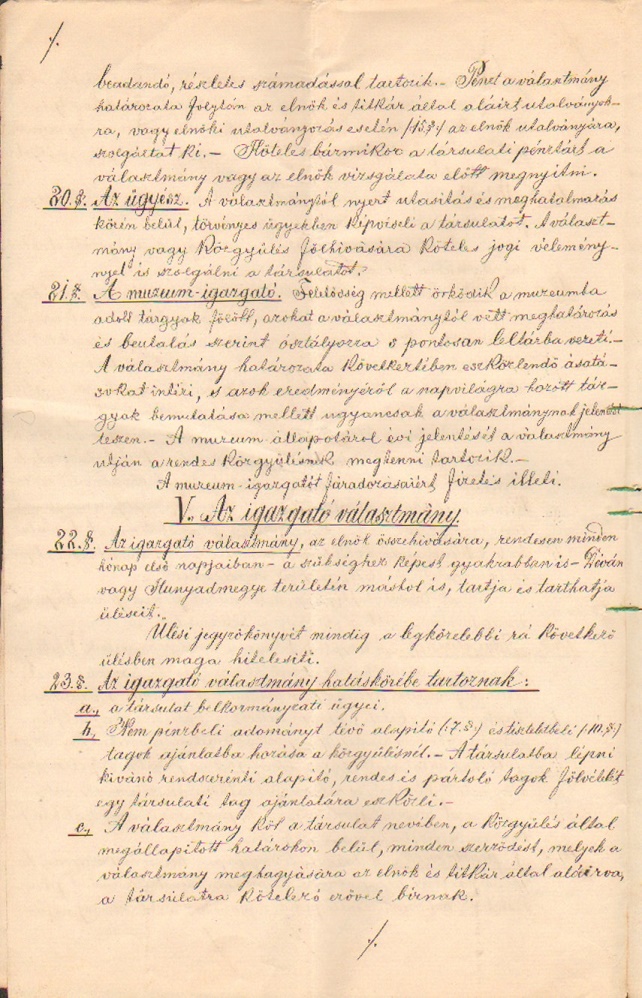 ./.
beadandó, részletes számadással tartozik.- Pénzt a választmány
határozata folytán az elnök és titkár által aláirt utalványok-
ra, vagy elnöki utalványozás esetén /:15.§:/ az elnök utalványára,
szolgáltat ki.- Köteles bármikor a társulati pénztárt a
választmány vagy az elnök vizsgálata előtt megnyitni.
20.§. Az ügyész. A választmánytól nyert utasitás és meghatalmazás
körén belül, törvényes ügyekben képviseli a társulatot. A választ-
mány vagy közgyülés fölhivására köteles jogi vélemény-
nyel is szolgálni a társulatot.
21.§. A muzeum-igazgató. Felelősség mellett őrködik a muzeumba
adott tárgyak fölött, azokat a választmánytól vett meghatározás
és beutalás szerint osztályozza s pontosan leltárba vezeti.-
A választmány határozata következtében eszközlendő ásatá-
sokat intézi, s azok eredményéről a napvilágra hozott tár-
gyak bemutatása mellett ugyancsak a választmánynak jelentést
teszen.- A muzeum állapotáról évi jelentését a választmány
utján a rendes közgyülésnek megtenni tartozik.-
A muzeum-igazgatót fáradozásaiért fizetés illeti.
V. Az igazgató választmány.
22.§. Az igazgató választmány, az elnök összehivására, rendesen minden
hónap első napjaiban - a szükséghez képest gyakrabban is - Déván
vagy Hunyadmegye területén mástol is, tartja és tarthatja
üléseit.
Ülési jegyzőkönyvét mindig a legközelebbi rá következő
ülésben maga hitelesiti.
23.§. Az igazgató választmány hatáskörébe tartoznak:
a., a társulat belkormányzati ügyei.
b., Nem pénzbeli adományt tévő alapitó (:7.§:) és tiszteletbeli (:10.§:)
tagok ajánlatba hozása a közgyülésnél.- A társulatba lépni
kivánó rendszerinti alapitó, rendes és pártoló tagok fölvételét
egy társulati tag ajánlatára eszközli.-
c., A választmány köt a társulat nevében, a közgyülés által
megállapitott határokon belül, minden szerződést, melyek a
választmány meghagyására az elnök és titkár által aláirva,
a társulatra kötelező erővel birnak.
./.